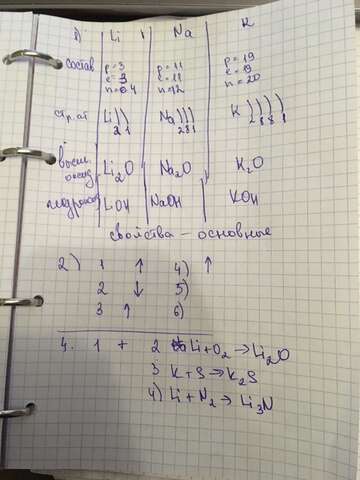 1) Li Na K
состав p=3 p=11 p=19
e=3 e=11 e=19
n=4 n=12 n=20
стр. ат Li))21 Na)))281 K))))2881
высш. оксид Li₂O Na₂O K₂O
гидроксид LiOH NaOH KOH
свойства – основные
2) 1 ↑ 4) ↑
2 ↓ 5)
3 ↑ 6)
4. 1 + 2 Li+O₂→Li₂O
3 K+S→K₂S
4) Li+N₂→Li₃N